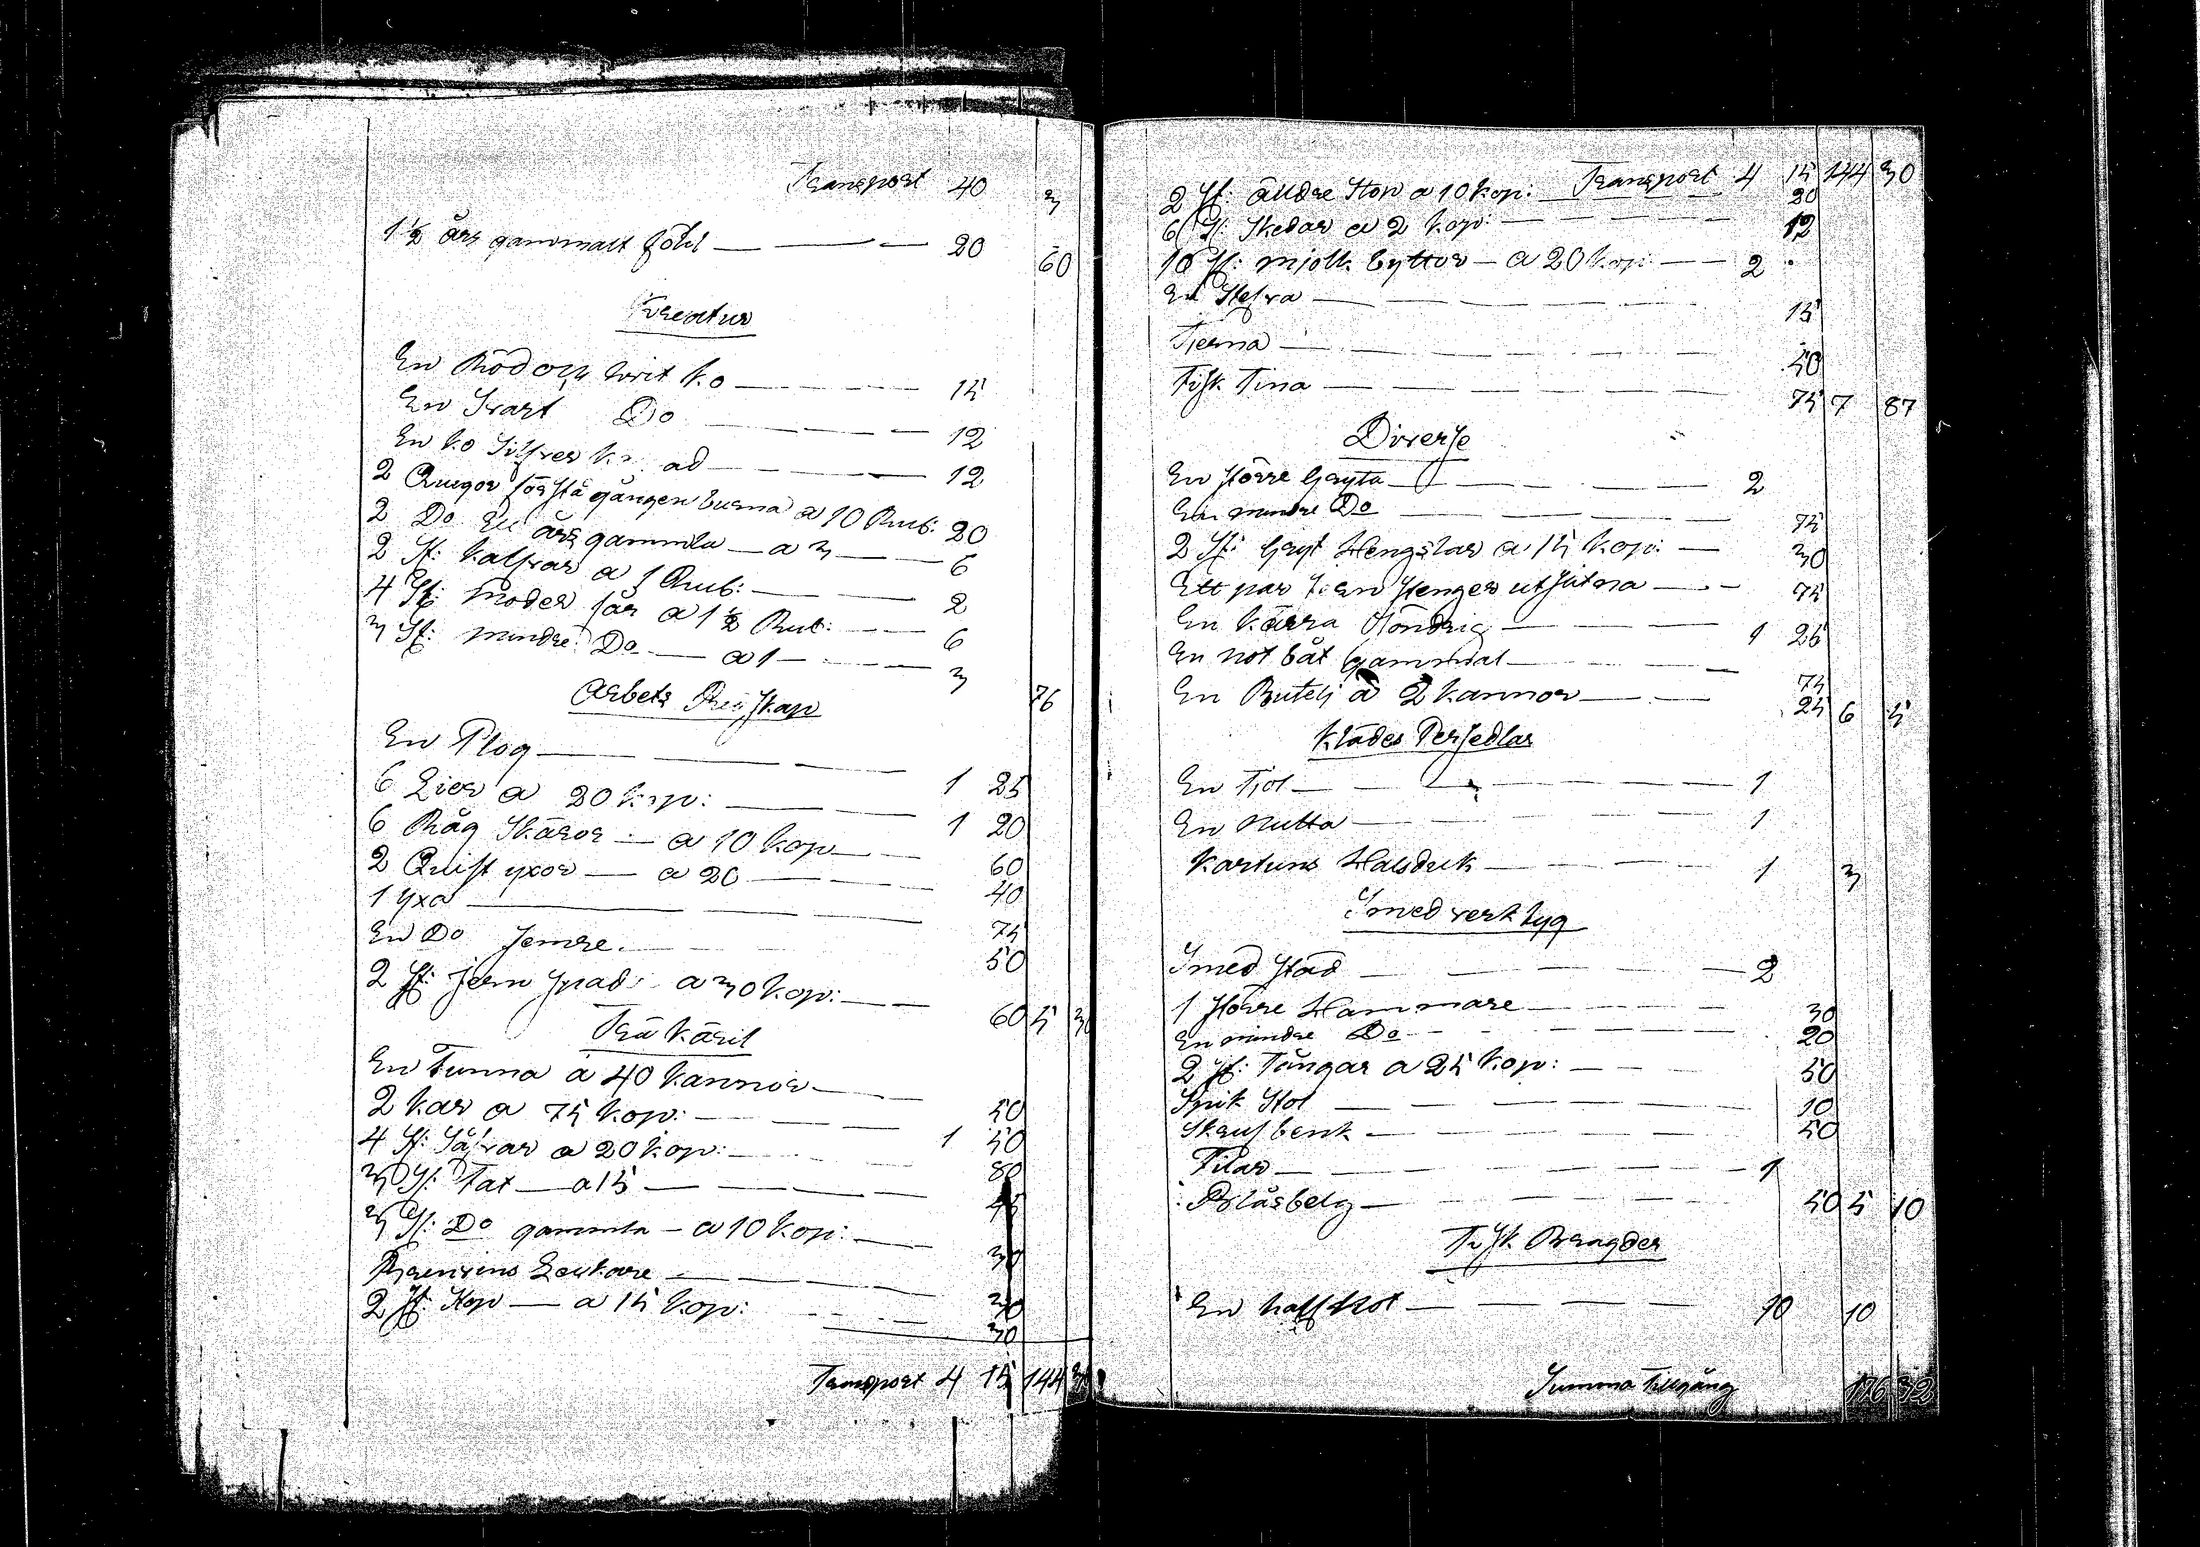 Transport 40 3
1 1/2 års gammalt föhl — — — 20 60
Kreatur
En Röd och hvit ko — — — 15
En Svart Do — — — 12
En ko Silfver — — — 12
2 Quigor första gången burna a 10 Rub: 20
2 Do Ett års gammla — a 3 — 6
2 st: kalfvar a 1 Rub: — — — 2
4 st: Moder får a 1 1/2 Rub: — — 6
3 st: mindre Do — a 1 — — — 3 76
Arbets Redskap
En Plog — — — 1 25
6 Lier a 20 kop: — — — 1 20
6 Råg Skäror — a 10 kop — — 60
2 Quist yxor — a 20 — — — 40
1 yxa — — — 75
En Do semre — — — 50
2 st: jern spad a 30 kop: — — 60 5 30
Trä käril
En Tunna a 40 kannor — — — 50
2 kar a 75 kop: — — — 1 50
4 st: Såfvar a 20 kop: — — — 80
3 st: Fat — a 15 — — — 45
3 st: Do gammla — a 10 kop: — — 30
Brenvins Lankare — — — 30
2 st: Stop — a 15 kop: — — 30
Transport 4 15 144 30
Transport 4 15 144 30
2 st: äldre Stop a 10 kop: — — 20
6 st: Skedar a 2 kop: — — — 12
10 st: Mjölk byttor — a 20 kop: — — 2 .
En Stefva — — — 15
Tjerna — — — 50
Fisk Tina — — — 75 7 87
Diverse
En större Gryta — — — 2
En mindre Do — — — 75
2 st: Gryt Hengslar a 15 kop: — 30
Ett par jern stenger utslitna — — 75
En kärra Söndrig — — — 1 25
En not båt Gammal — — — 75
En Butelj a 2 kannor — — 25 6 5
Klädes Persedlar
En Kjol — — — 1
En Mutta — — — 1
Kartuns Halsduk — — — 1 3
Smed verktyg
Smed städ — — — 2
1 större Hammare — — — 30
En mindre Do — — — 20
2 st: Tångar a 25 kop: — — 50
Spik Stol — — — 10
Skrufbenk — — — 50
Filar — — — 1
Blåsbelg — — — 50 5 10
Fisk Bragder
En half Not — — — 10 10
Summa Tillgång 176 32